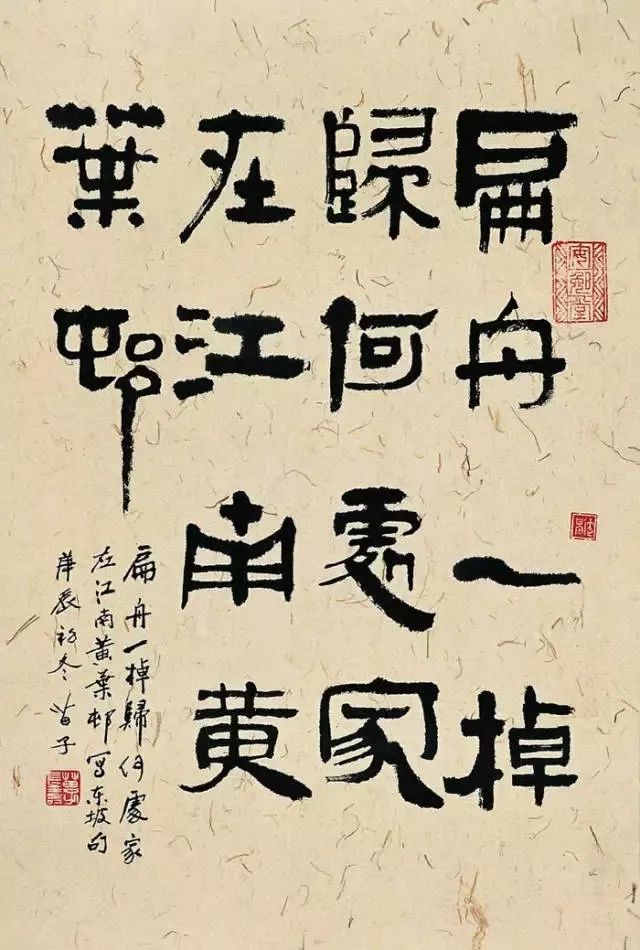 扁舟一掉
歸何處家
在江南黄
葉邨
扁舟一掉歸何處家
在江南黄葉邨寫东坡句
庚辰初冬苗子